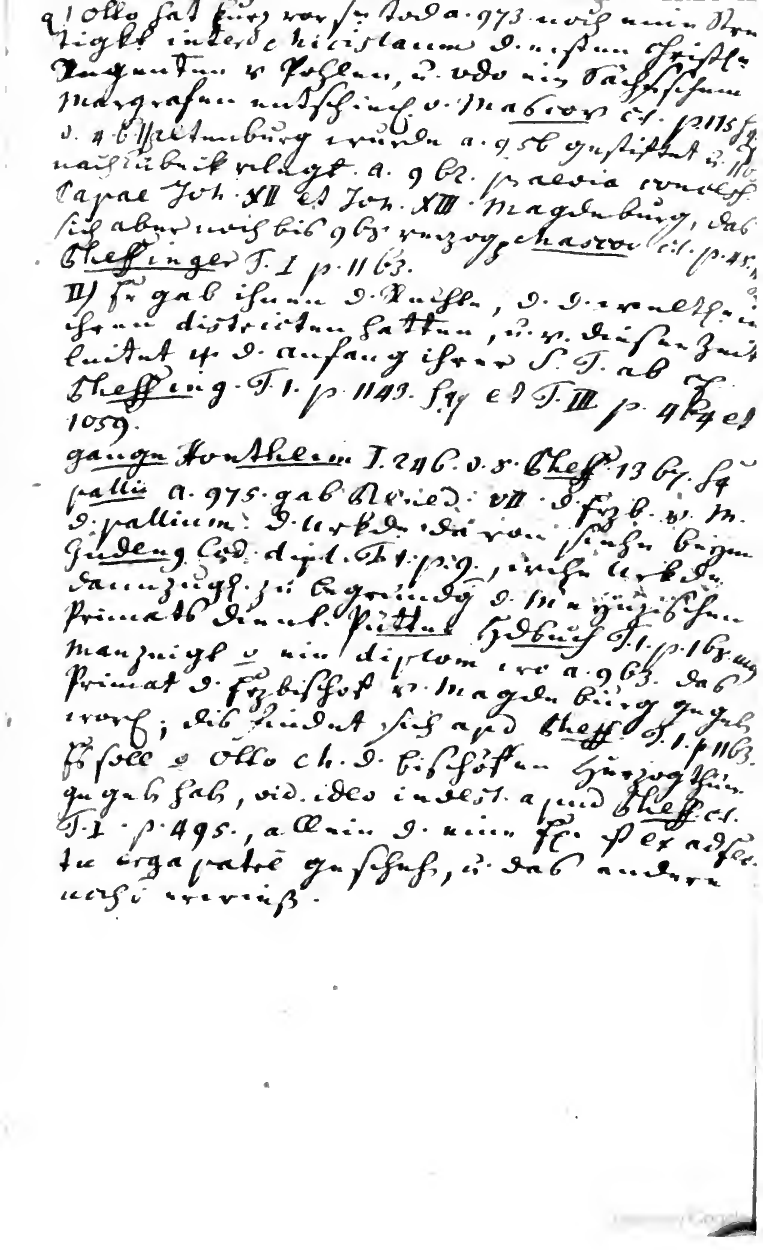 9) Otto hat kurz vor sn tod a. 973 noch einen Strei
tigkt inter Micislaum d. ersten christl.
Regenten v Pohlen, u. Udo ein Sächsischem
Margrafen entschied. v. Mascov cit. p. 115 sq
Altenburg wurde a. 956 gestiftet u.
nach Lübeck verlegt. a. 962. praevia concess.
Papae Joh. XII et Joh. XIII. Magdeburg, das
sich aber noch bis 968 verzog, Mascov cit. p. 45.
Sheffinger T. I p. 1163.
II) Er gab ihnen d. Rechte, d. d. weltl. in
ihren districten hatten, u. v. dieser Zeit
leitet d. anfang ihrer S. T. ab
Sheffing. T. 1. p. 1143. sqq et T. III p. 484 et
1059.
gange Hontheim T. 246. v. Sheff 1367. sq
pallii a. 975. gab Bened. VII d. Erzb. v. M.
d. pallium. d. Urkde davon siehe beym
Gudeng Cod. dipl. T. 1. p. 9., welche Urkde
dann zugl. zu begründg d. Maynzischen
Primats dient. Pütter Hdbuch T. 1. p. 168.
Man zeigt ein diplom wo a. 963. das
Primat d. Erzbischof v. Magdeburg gegeb
word; dis findet sich apd Sheff. T. 1. p 1163.
Es soll Otto d. bischöfen Herzogthüm.
gegeb hab, vid. ideo indest. apud Sheff. cit.
T. I. p. 495., allein d. eine ist ex
tu erga patrē gescheh, u. das andere
noch ungewiß.